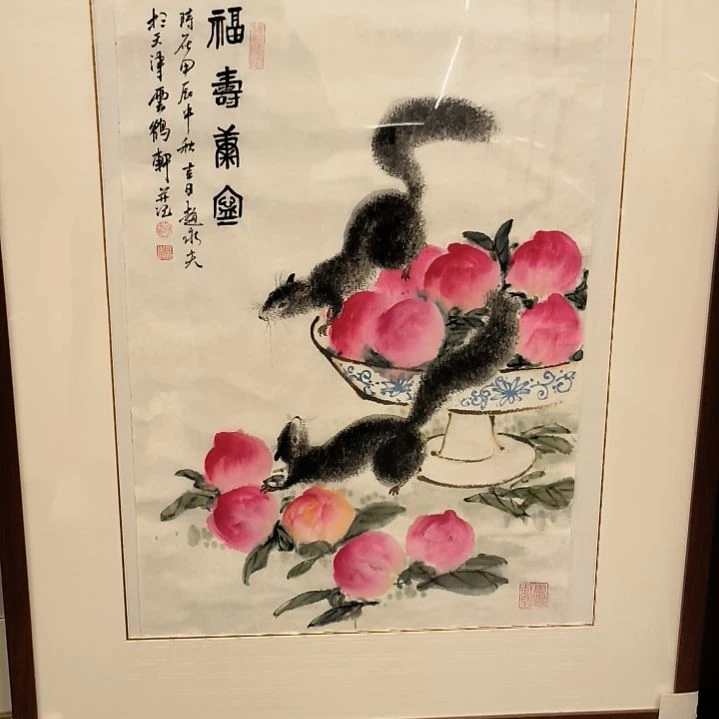 福壽兼全
時在甲辰中秋吉日趙永夫
於天津雲鶴軒並記